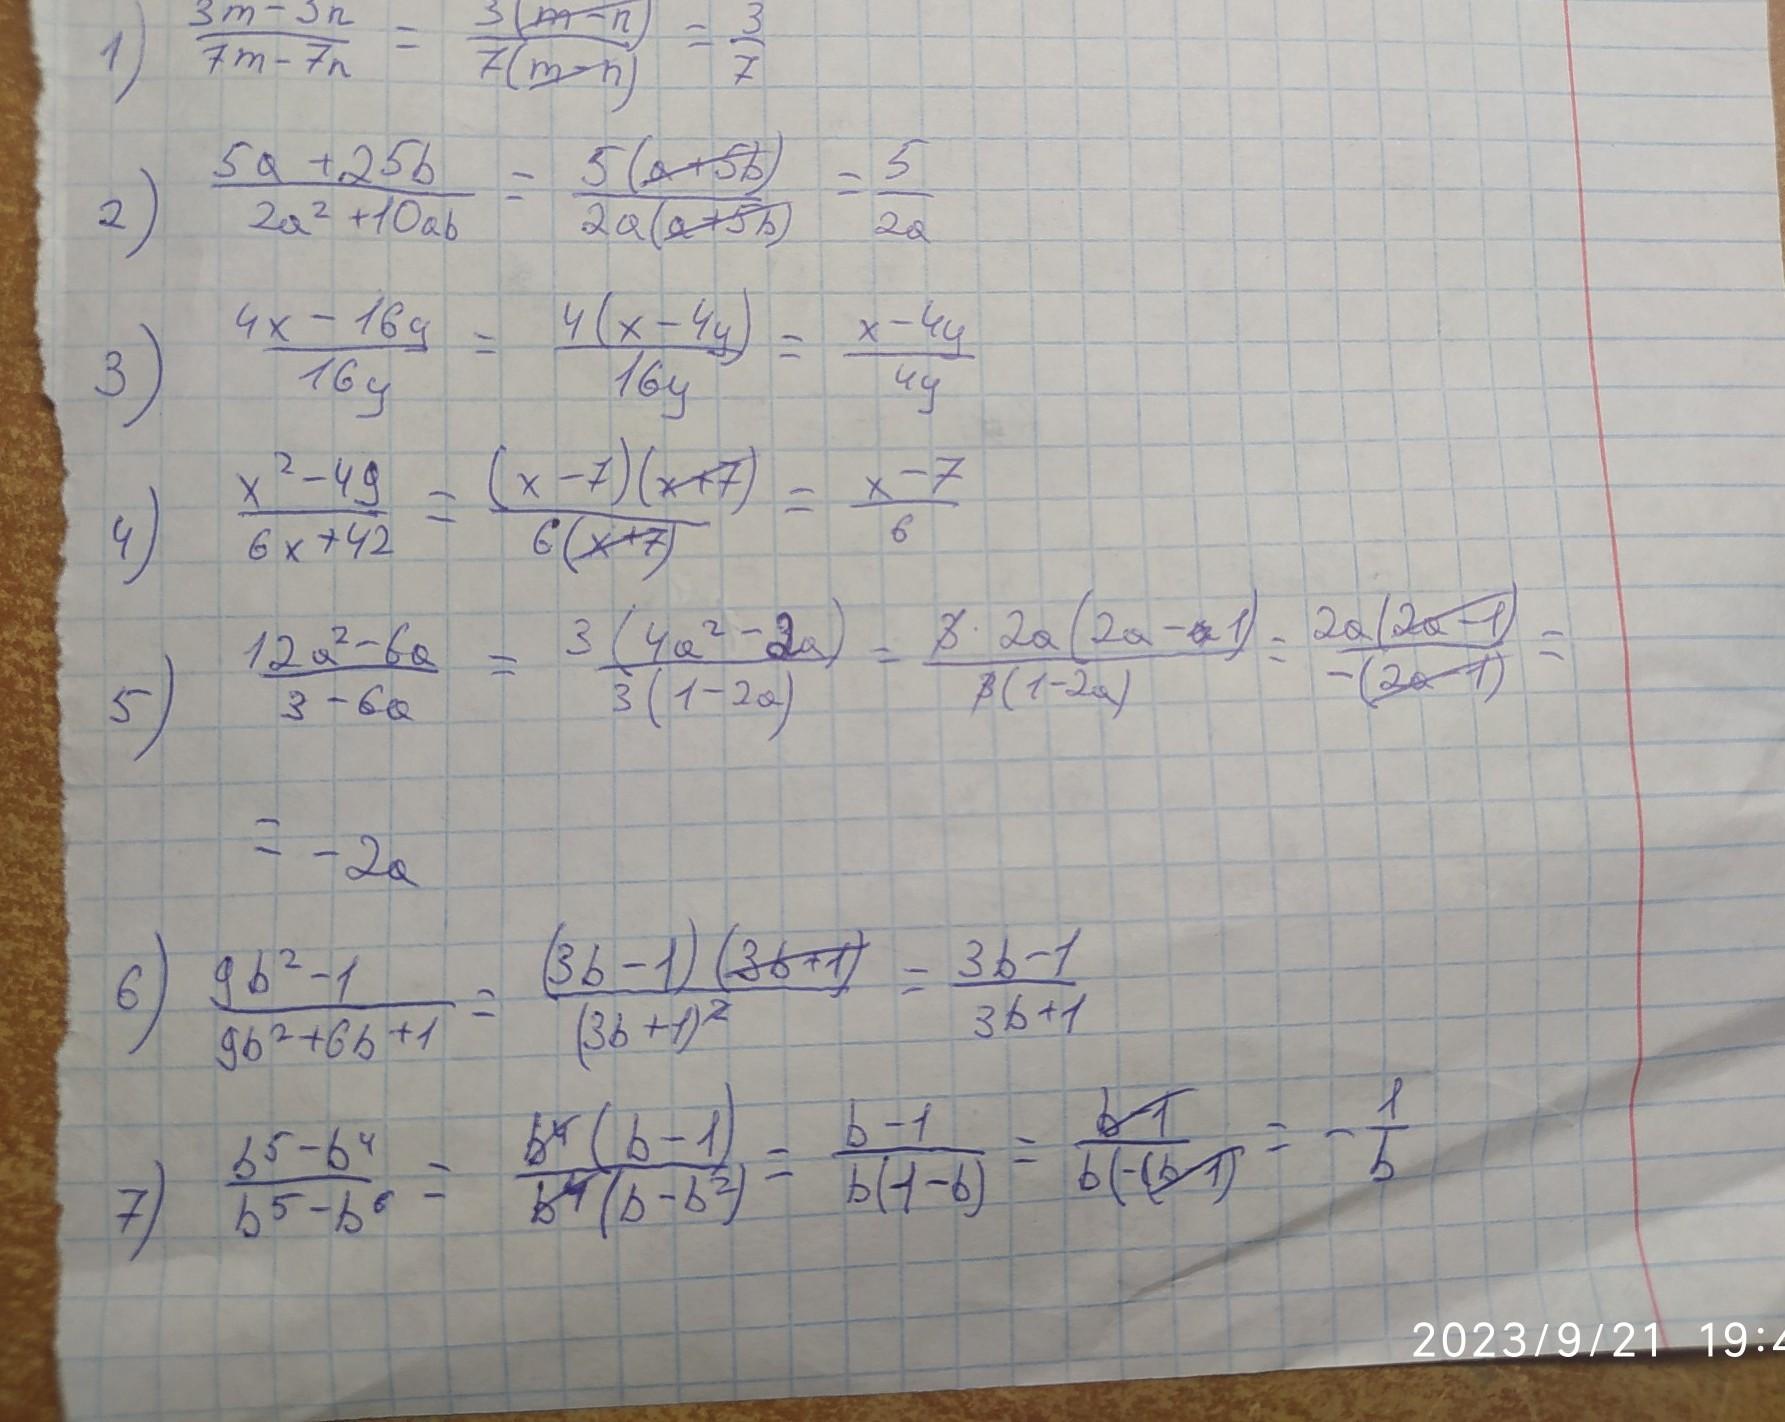 1) (3m-3n)/(7m-7n) = 3(m-n)/7(m-n) = 3/7
2) (5a+25b)/(2a²+10ab) = 5(a+5b)/2a(a+5b) = 5/2a
3) (4x-16y)/16y = 4(x-4y)/16y = (x-4y)/4y
4) (x²-49)/(6x+42) = (x-7)(x+7)/6(x+7) = (x-7)/6
5) (12a²-6a)/(3-6a) = 3(4a²-2a)/3(1-2a) = 3·2a(2a-1)/3(1-2a) = 2a(2a-1)/-(2a-1) =
= -2a
6) (9b²-1)/(9b²+6b+1) = (3b-1)(3b+1)/(3b+1)² = (3b-1)/(3b+1)
7) (b⁵-b⁴)/(b⁵-b⁶) = b⁴(b-1)/b⁴(b-b²) = (b-1)/b(1-b) = (b-1)/b(-(b-1) = -1/b
2023/9/21 19:4